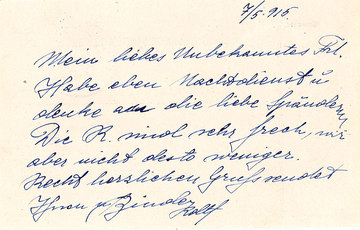 7/5. 915.
Mein liebes Unbekanntes Frl.
Habe eben Nachtdienst u
denke an die liebe Spenderin
Die R. sind sehr frech, wir
aber nicht desto weniger.
Recht herzlichen Gruss sendet
Ihnen